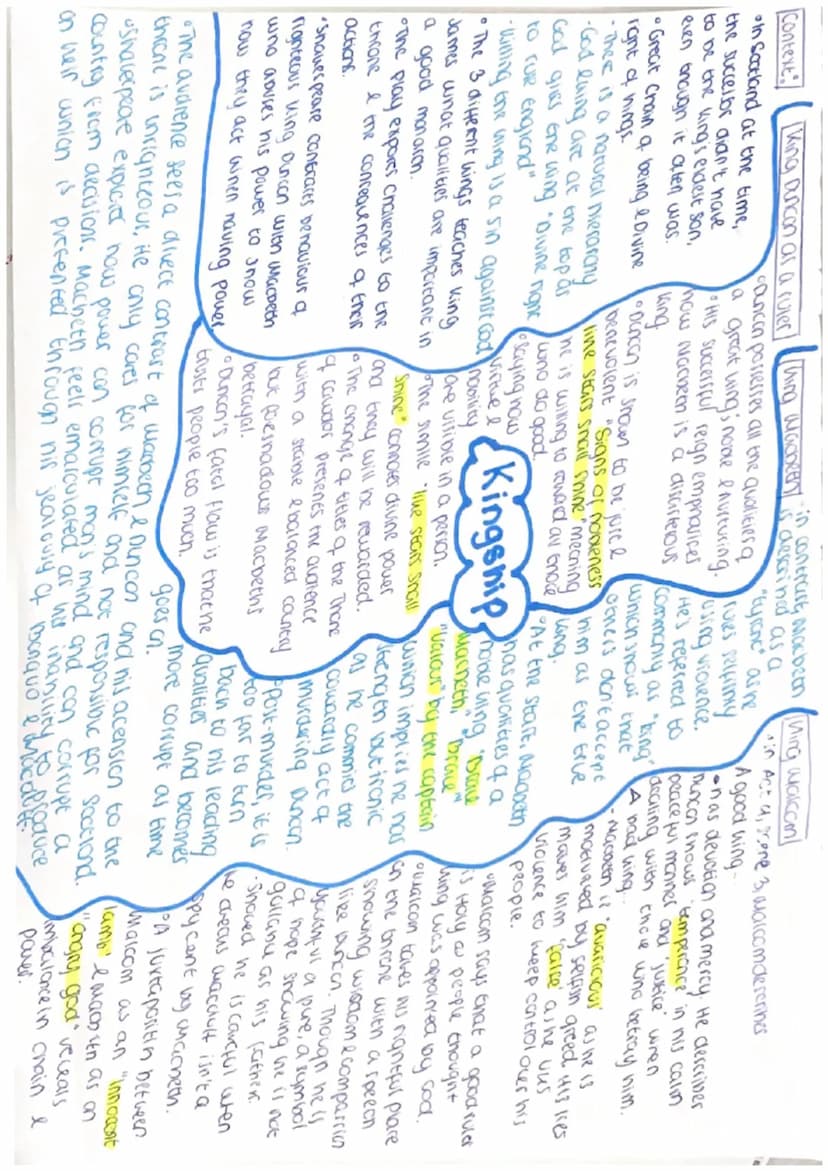 Context:
• In Scotland at the time,
the successor didn't have
to be the King's eldest son,
even though it often was.
• Great Chain of being & Divine
right of kings.
- There is a natural hierarchy
- God & King are at the top as
God gives the King "Divine right
to rule England"
- Killing the King is a sin against God
• The 3 different kings teaches King
James what qualities are important in
a good monarch.
• The play explores challenges to the
throne & the consequences of their
actions.
• Shakespeare contrasts behaviour of
righteous King Duncan with Macbeth
who abuses his power to show
how they act when having power
King Duncan as a ruler
• Duncan possesses all the qualities of
a great king; noble & nurturing.
• His successful reign emphasises
how Macbeth is a disastrous
King
• Duncan is shown to be just &
benevolent "Signs of nobleness
like stars shall shine" meaning
he is willing to reward all those
who do good
• Saying how
virtue &
nobility
are visible in a person.
• The simile "like stars shall
shine" connotes divine power
and they will be rewarded.
• The change of titles of the Thane
of Cawdor presents the audience
with a stable & balanced country
but foreshadows Macbeth's
betrayal.
• Duncan's fatal flaw is that he
trusts people too much.
Kingship
King Macbeth
- in contrast Macbeth
is described as a
"tyrant" as he
rules selfishly
using violence.
• He's referred to
commonly as "king"
which shows that
others don't accept
him as the true
king.
• At the start, Macbeth
has qualities of a
noble king "Brave
Macbeth," "brave"
"valour" by the captain
which implies he has
strength but ironic
as he commits the
cowardly act of
murdering Duncan.
• Post-murder, it is
too far to turn
back to his leading
qualities and becomes
more corrupt as time
goes on.
• The audience sees a direct contrast of Macbeth & Duncan and his ascension to the
throne is unrighteous. He only cares for himself and not responsible for Scotland.
• Shakespeare explores how power can corrupt man's mind and can corrupt a
country from decisions. Macbeth feels emasculated at his inability to produce
an heir which is presented through his jealousy of Banquo & Macduff.
King Malcom
• in Act 4, Scene 3, Malcom determines
A good king -
• has devotion and mercy. He describes
Duncan shows 'temperance' in his calm
peaceful manner and 'justice' when
dealing with those who betray him.
A bad king -
- Macbeth is "avaricious" as he is
motivated by selfish greed. His lies
makes him "false" as he uses
violence to keep control over his
people.
• Malcom says that a good ruler
is Holy as people thought
King was appointed by God.
• Malcom takes his rightful place
on the throne with a speech
showing wisdom & compassion
like Duncan. Though he is
youthful & pure, a symbol
of hope showing he is not
gullible as his father.
- Showed he is careful when
he checks Macduff isn't a
spy sent by Macbeth.
• A juxtaposition between
Malcom as an "innocent
lamb" & Macbeth as an
"angry god" reveals
imbalance in chain &
power.